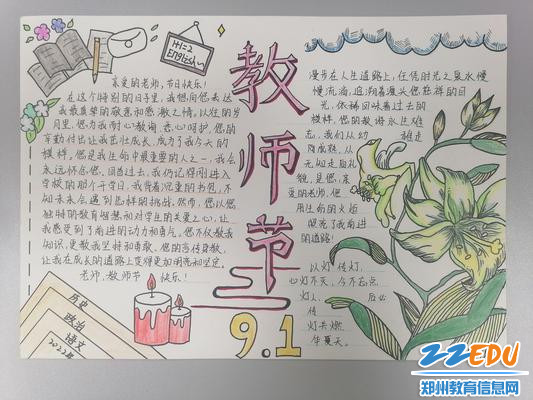 1+1=2
English
亲爱的老师,节日快乐!
在这个特别的日子里,我想向您表达
我最真挚的敬意和感激之情。以往的岁
月里,您为我耐心教诲,悉心呵护,您的
辛勤付出让我茁壮成长,成为了我今天的
模样。您是我生命中最重要的人之一,我会
永远怀念您。回首过去,我仍记得刚进入
学校的那个开学日,我背着沉重的书包,不
知未来会遇到怎样的挑战。然而,您以您
独特的教育智慧和对学生的关爱之心,让
我感受到了前进的动力和勇气。您不仅教我
知识,更教我坚持和勇敢。您的言传身教,
让我在成长的道路上变得更加明亮和坚定。
老师,教师节快乐!
教师节
9.1
漫步在人生道路上,任凭时光之泉水慢
慢流淌,追溯着源头您慈祥的目
光,依稀回味着过去的
模样,您的教诲永生难
忘,我们从幼
稚走
向成熟,从
无知走向礼
貌,是您,亲
爱的老师,您
用生命的火焰
照亮了我前进
的道路!
以灯传灯,
心灯不灭,今不忘点
灯人,
后必
传
灯共燃
华夏天。
历史
政治
语文
2022班
22EDU
郑州教育信息网